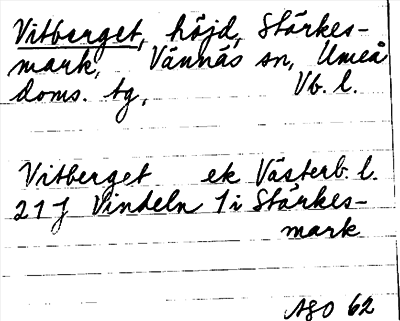 Vitberget, höjd, Stärkes-
mark, Vännäs sn, Umeå
doms. tg, Vb. l.
Vitberget ek Västerb. l.
21 J Vindeln 1 i Stärkes-
mark
ASO 62